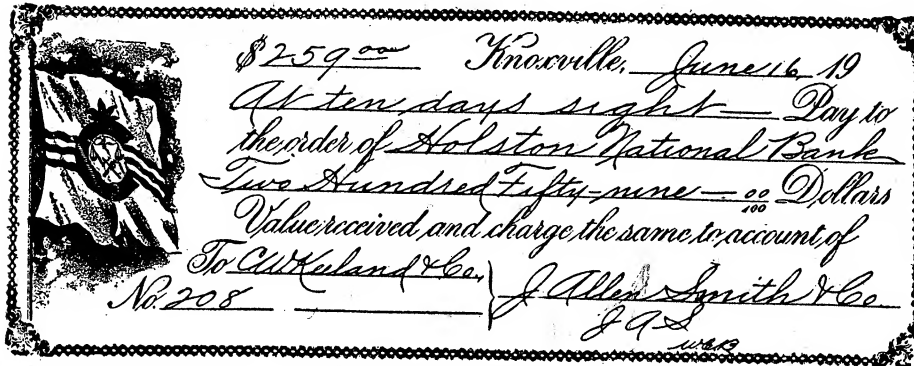 $259 00 Knoxville, June 16, 19
At ten days sight — Pay to
the order of Holston National Bank
Two Hundred Fifty-nine — 00/100 Dollars
Value received, and charge the same to account of
To CW Keeland & Co.
No. 208
J Allen Smith & Co
J A S